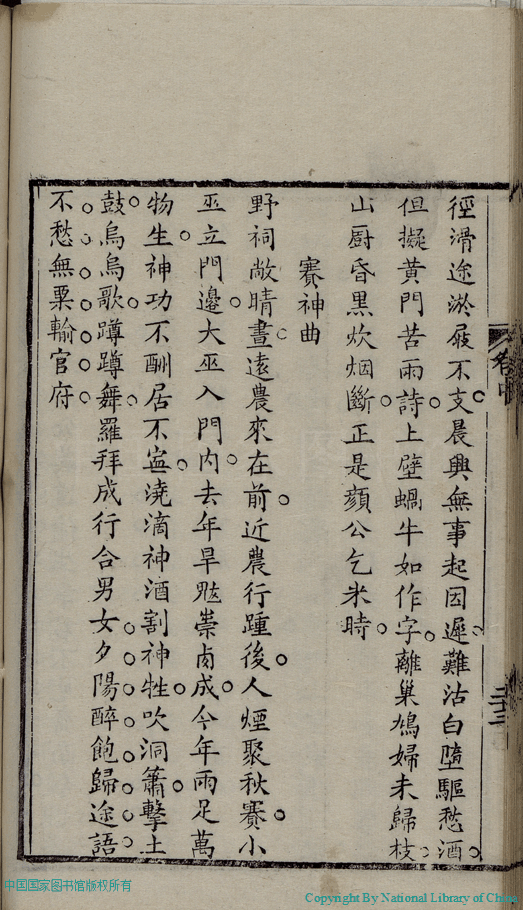 徑滑途淤屐不支晨興無事起因遲難沽白墮驅愁酒
但擬黃門苦雨詩上壁蝸牛如作字離巢鳩婦未歸枝
山厨昏黑炊烟斷正是顔公乞米時
賽神曲
野祠敞晴晝遠農來在前近農行踵後人煙聚秋賽小
巫立門邊大巫入門内去年旱魃祟鹵成今年雨足萬
物生神功不酬居不寍澆滴神酒割神牲吹洞簫擊土
鼓烏烏歌蹲蹲舞羅拜成行合男女夕陽醉飽歸途語
不愁無粟輸官府
卷中
二十三
中国国家图书馆版权所有
Copyright By National Library of China